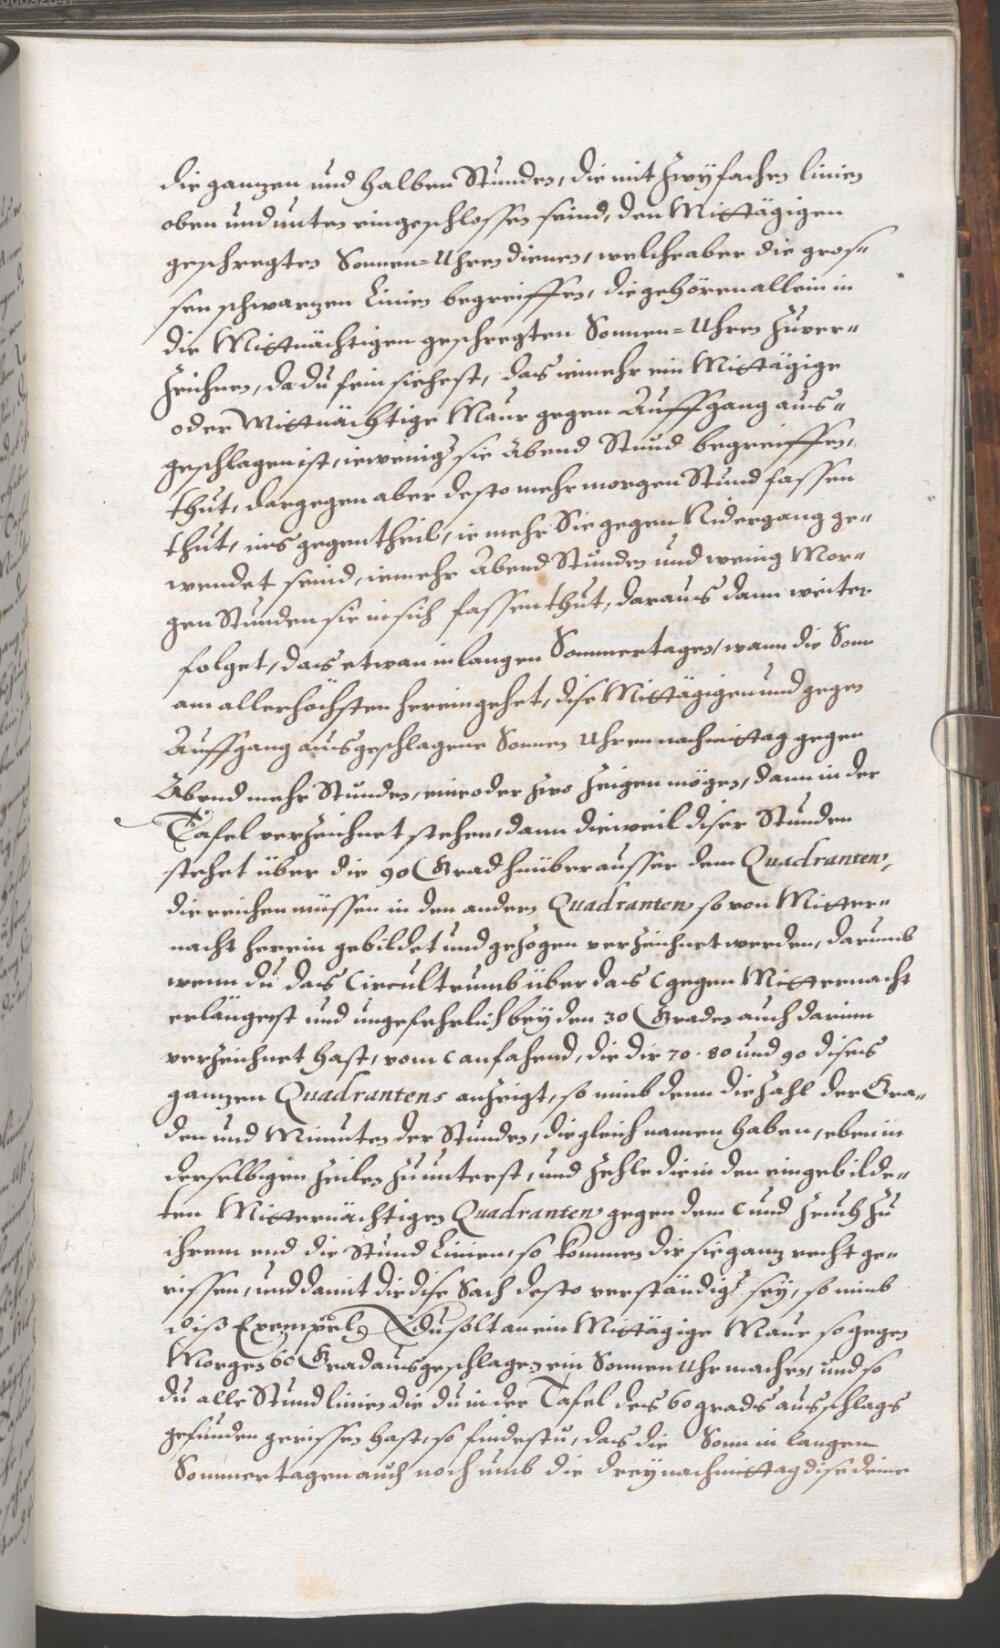 die ganzen und halben Stunden, die mit zwyfachen linien
oben und unten eingeschlossen seind, den Mittägigen
geschregten Sonnen=Uhren dienen, welche aber die gros=
sen schwarzen Linien begreiffen, die gehören allein in
die Mittnächtigen geschregten Sonnen=Uhren zuver=
zeichnen, da du fein siehest, das iemehr ein Mittägige
oder Mittnächtige Maur gegen Auffgang aus=
geschlagen ist, ieweniger sie Abend Stund begreiffen,
thut, dargegen aber desto mehr morgen Stund fassen
thut, ins gegentheil, ie mehr Sie gegen Nidergang ge=
wendet seind, iemehr Abend Stunden und wenig Mor=
gen Stunden sie in sich fassen thut, daraus dann weiter
folget, das etwan in langen Sommertagen, wann die Sonn
am allerhöchsten hereingehet, dise Mittägigen und gegen
Auffgang ausgeschlagene Sonnen Uhren nachmittag gegen
Abend mehr Stunden, eine oder zwo zeigen mögen, dann in der
Tafel verzeichnet stehen, dann dieweil diser Stunden
stehet über die 90 Grad hinüber ausser dem Quadranten,
die reichen müssen in den andern Quadranten so von Mitter=
nacht herein gebildet und gezogen verzeichnet werden, darumb
wenn du das Circultrumb über das C gegen Mitternacht
erlängerst und ungefehrlich bey den 30 Graden auch darinn
verzeichnet hast, vom C anfahend, die dir 70. 80 und 90 dises
ganzen Quadrantens anzeigt, so nimb denn die zahl der Gra=
den und Minuten der Stunden, die gleich namen haben, eben in
derselbigen zeilen zu unterst, und zehle die in den eingebilde=
ten Mitternächtigen Quadranten gegen dem C und zeuch zu
ihrem end die Stund Linien, so kommen dir sie ganz recht ge=
rissen, und damit dir dise Sach desto verständiger sey, so nimb
diß Exempel, Du solt an ein Mittägige Maur so gegen
Morgen 60 Grad ausgeschlagen ein Sonnen Uhr machen, und so
du alle Stund linien die du in der Tafel des 60 grads ausschlags
gefunden gerissen hast, so findestu, das die Sonn in langen
Sommertagen auch noch umb die drey nachmittag dise deine